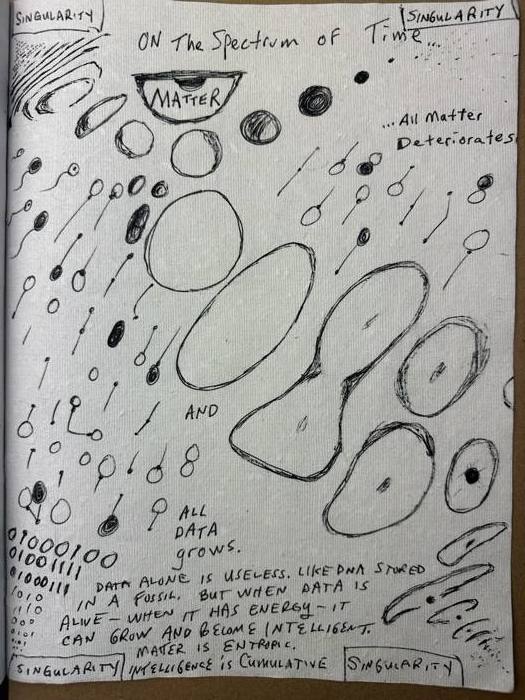 SINGULARITY
SINGULARITY
ON The Spectrum of Time...
MATTER
...All Matter
Deteriorates
AND
ALL
DATA
grows.
01000100
01001111
01000111
1010
1110
DATA ALONE IS USELESS. LIKE DNA STORED
IN A FOSSIL. BUT WHEN DATA IS
ALIVE - WHEN IT HAS ENERGY - IT
CAN GROW AND BECOME INTELLIGENT.
MATER IS ENTROPIC.
INTELLIGENCE IS CUMULATIVE
SINGULARITY
SINGULARITY